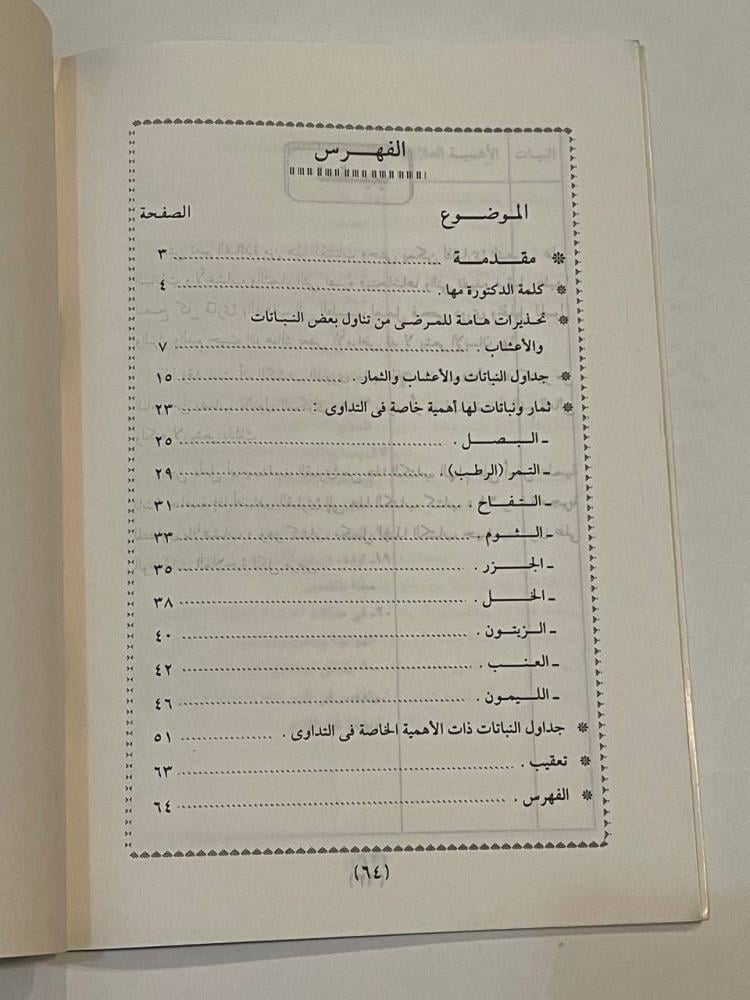 الفهرس
الموضوع الصفحة
* مقدمة ٣
* كلمة الدكتورة مها . ٤
* تحذيرات هامة للمرضى من تناول بعض النباتات
والأعشاب . ٧
* جداول النباتات والأعشاب والثمار . ١٥
* ثمار ونباتات لها أهمية خاصة فى التداوى : ٢٣
ـ البصل . ٢٥
ـ التمر (الرطب) . ٢٩
ـ التفاح . ٣١
ـ الثوم . ٣٣
ـ الجزر . ٣٥
ـ الخل . ٣٨
ـ الزيتون . ٤٠
ـ العنب . ٤٢
ـ الليمون . ٤٦
* جداول النباتات ذات الأهمية الخاصة فى التداوى . ٥١
* تعقيب . ٦٣
* الفهرس . ٦٤
(٦٤)